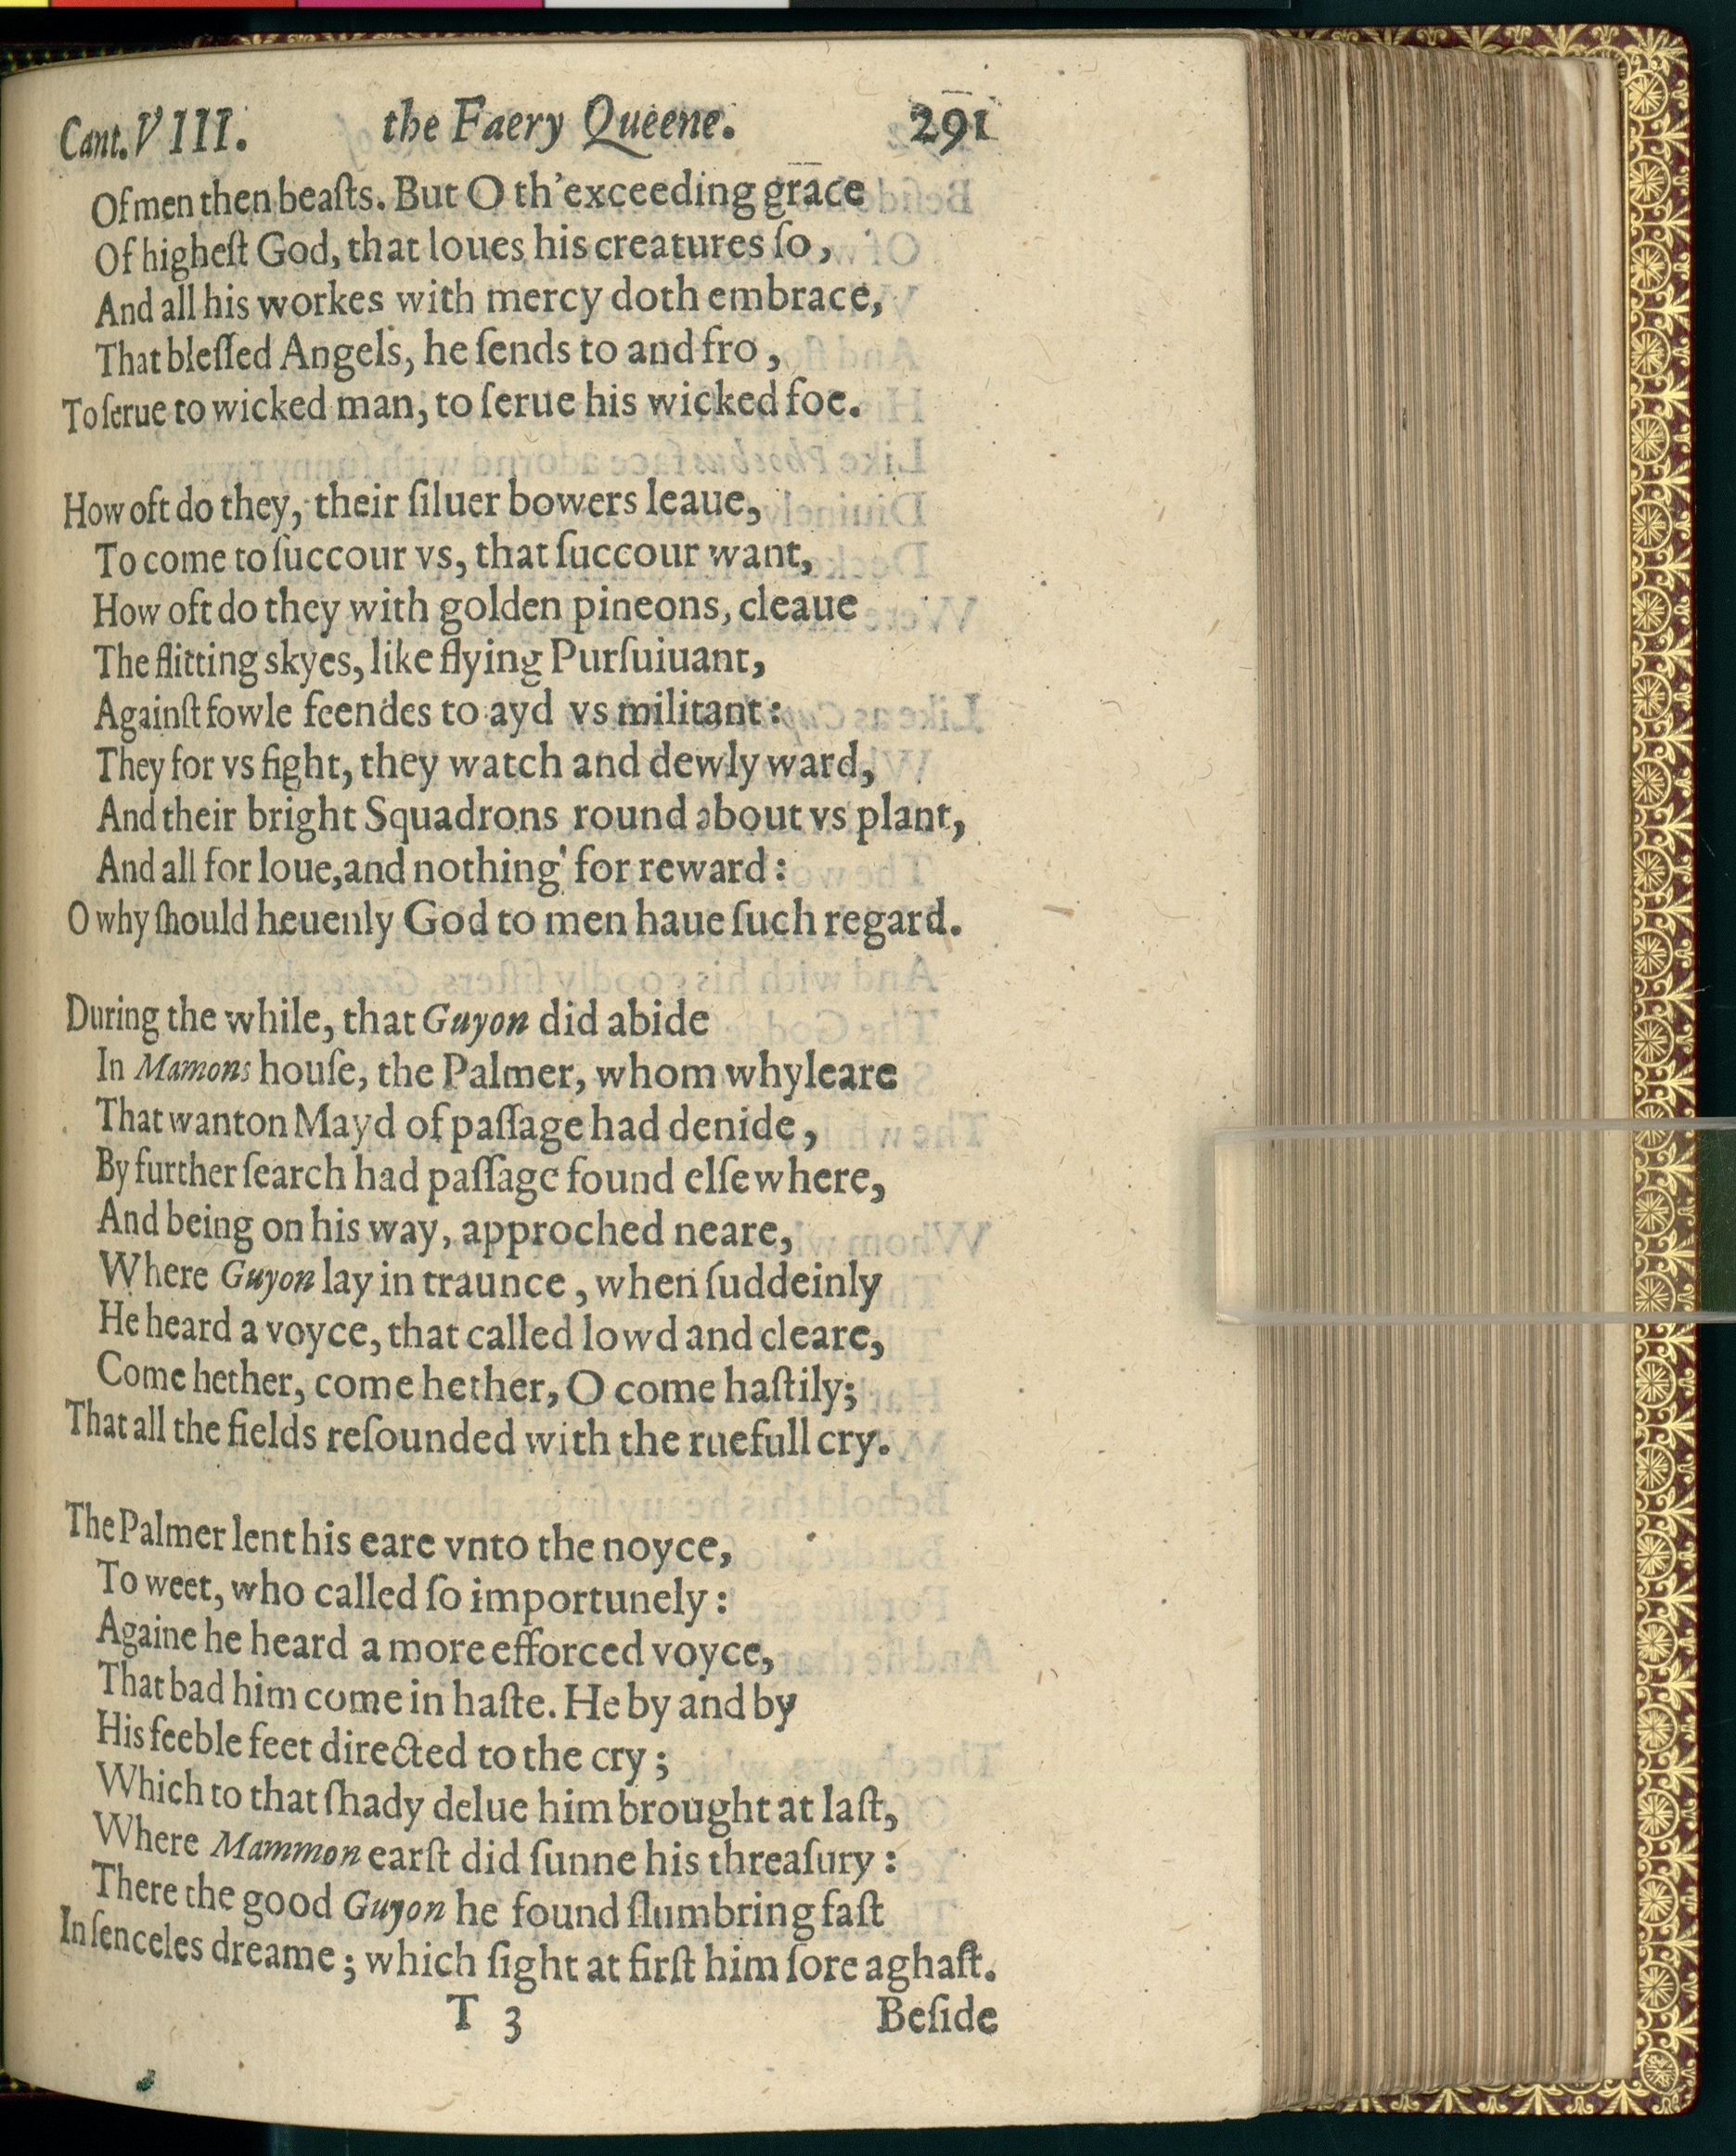 Cant. VIII. the Faery Queene. 291
Of men then beaſts. But O th'exceeding grace
Of higheſt God, that loues his creatures ſo,
And all his workes with mercy doth embrace,
That bleſſed Angels, he ſends to and fro,
To ſerue to wicked man, to ſerue his wicked foe.
How oft do they, their ſiluer bowers leaue,
To come to ſuccour vs, that ſuccour want,
How oft do they with golden pineons, cleaue
The flitting skyes, like flying Purſuiuant,
Againſt fowle feendes to ayd vs militant:
They for vs fight, they watch and dewly ward,
And their bright Squadrons round about vs plant,
And all for loue, and nothing for reward:
O why ſhould heuenly God to men haue ſuch regard.
During the while, that Guyon did abide
In Mamons houſe, the Palmer, whom whyleare
That wanton Mayd of paſſage had denide,
By further ſearch had paſſage found elſewhere,
And being on his way, approched neare,
Where Guyon lay in traunce, when ſuddeinly
He heard a voyce, that called lowd and cleare,
Come hether, come hether, O come haſtily;
That all the fields reſounded with the ruefull cry.
The Palmer lent his eare vnto the noyce,
To weet, who called ſo importunely:
Againe he heard a more efforced voyce,
That bad him come in haſte. He by and by
His feeble feet directed to the cry;
Which to that ſhady delue him brought at laſt,
Where Mammon earſt did ſunne his threaſury:
There the good Guyon he found ſlumbring faſt
In ſenceles dreame; which ſight at firſt him ſore aghaſt.
T 3 Beſide